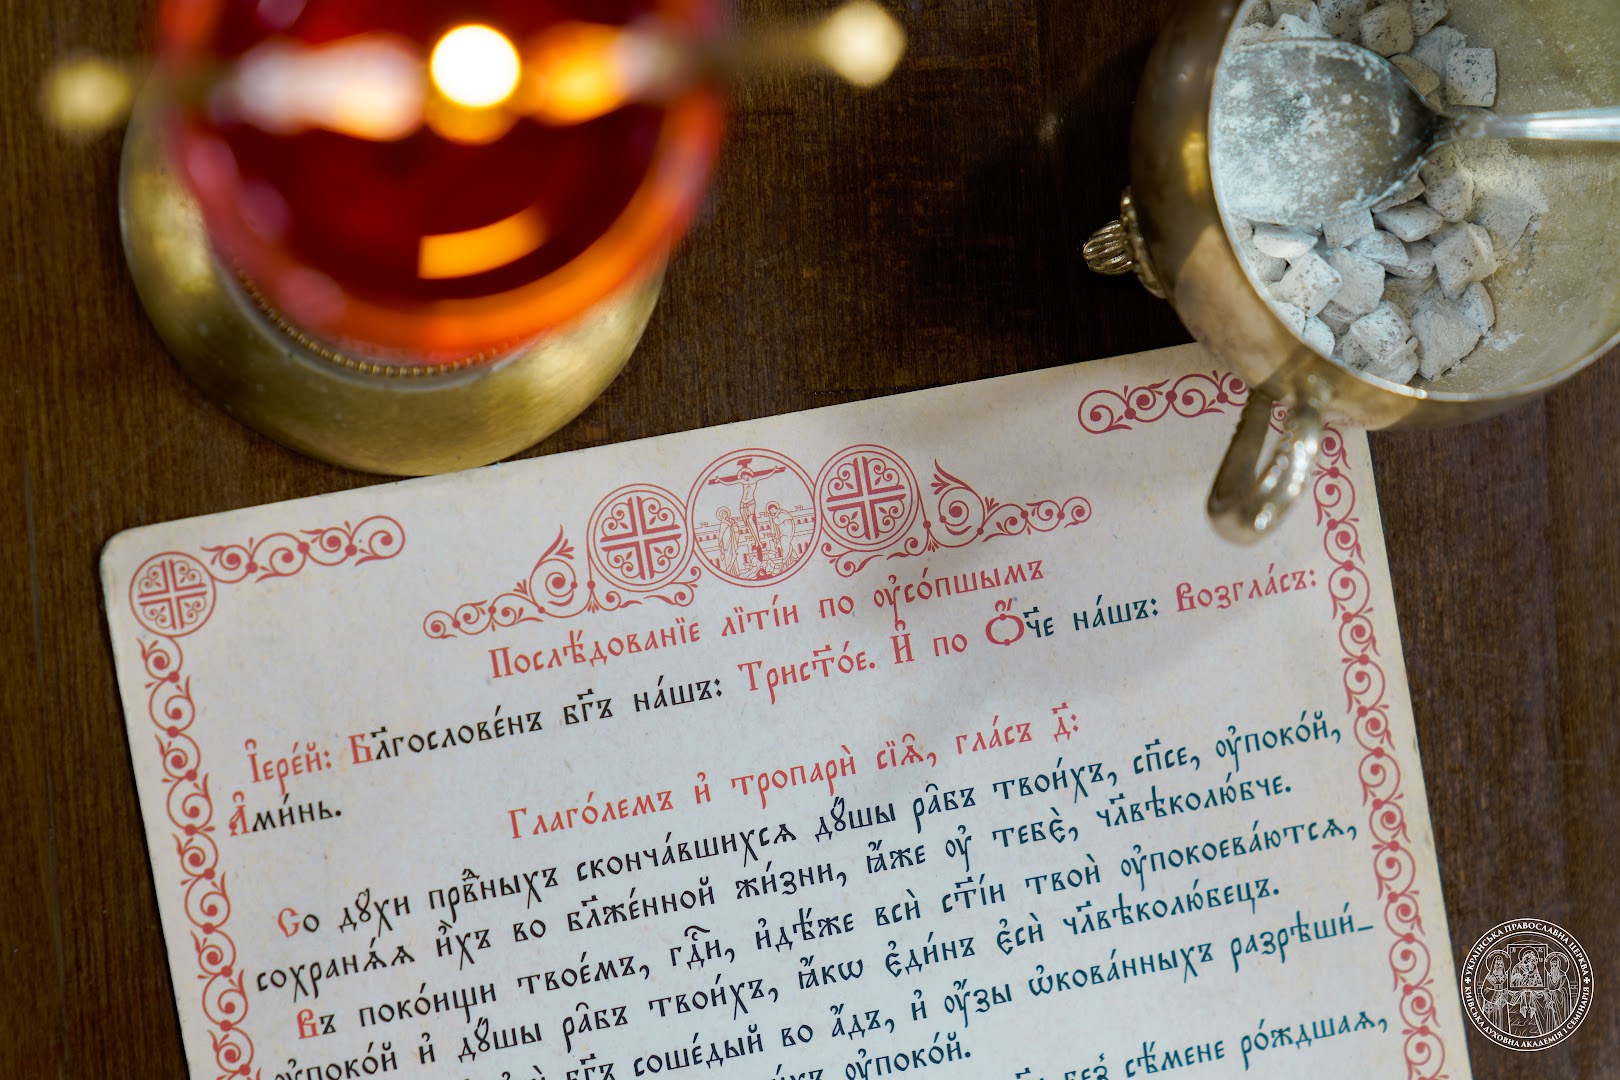 Послѣ́дованїе лїтїи́ по ᲂу҆со́пшымъ
І҆ере́й: Бл҃гослове́нъ бг҃ъ на́шъ: Трист҃о́е. И҆ по Ѻ҆́ч҃е на́шъ: Возгла́съ:
А҆ми́нь.
Глаго́лемъ и҆ тропарѝ сїѧ̑, гла́съ д҃:
Со дꙋ́хи прв̑ныхъ сконча́вшихсѧ дꙋ́шы ра̑бъ твои́хъ, сп҃се, ᲂу҆поко́й,
сохранѧ́ѧ и҆̀хъ во бл҃же́нной жи́зни, ꙗ҆́же ᲂу҆ тебє̀, чл҃вѣколю́бче.
Въ поко́ищи твое́мъ, гдⷭ҇и, и҆дѣ́же всѝ ст҃і́и твоѝ ᲂу҆покоева́ютсѧ,
ᲂу҆поко́й и҆ дꙋ́шы ра̑бъ твои́хъ, ꙗ҆́кѡ є҆ди́нъ є҆сѝ чл҃вѣколю́бецъ.
бг҃ъ соше́дый во а҆́дъ, и҆ ᲂу҆́зы ѡ҆кова́нныхъ разрѣши́_
ᲂу҆поко́й.
без̾ сѣ́мене ро́ждшаѧ,
УКРАЇНСЬКА ПРАВОСЛАВНА ЦЕРКВА
КИЇВСЬКА ДУХОВНА АКАДЕМІЯ І СЕМІНАРІЯ